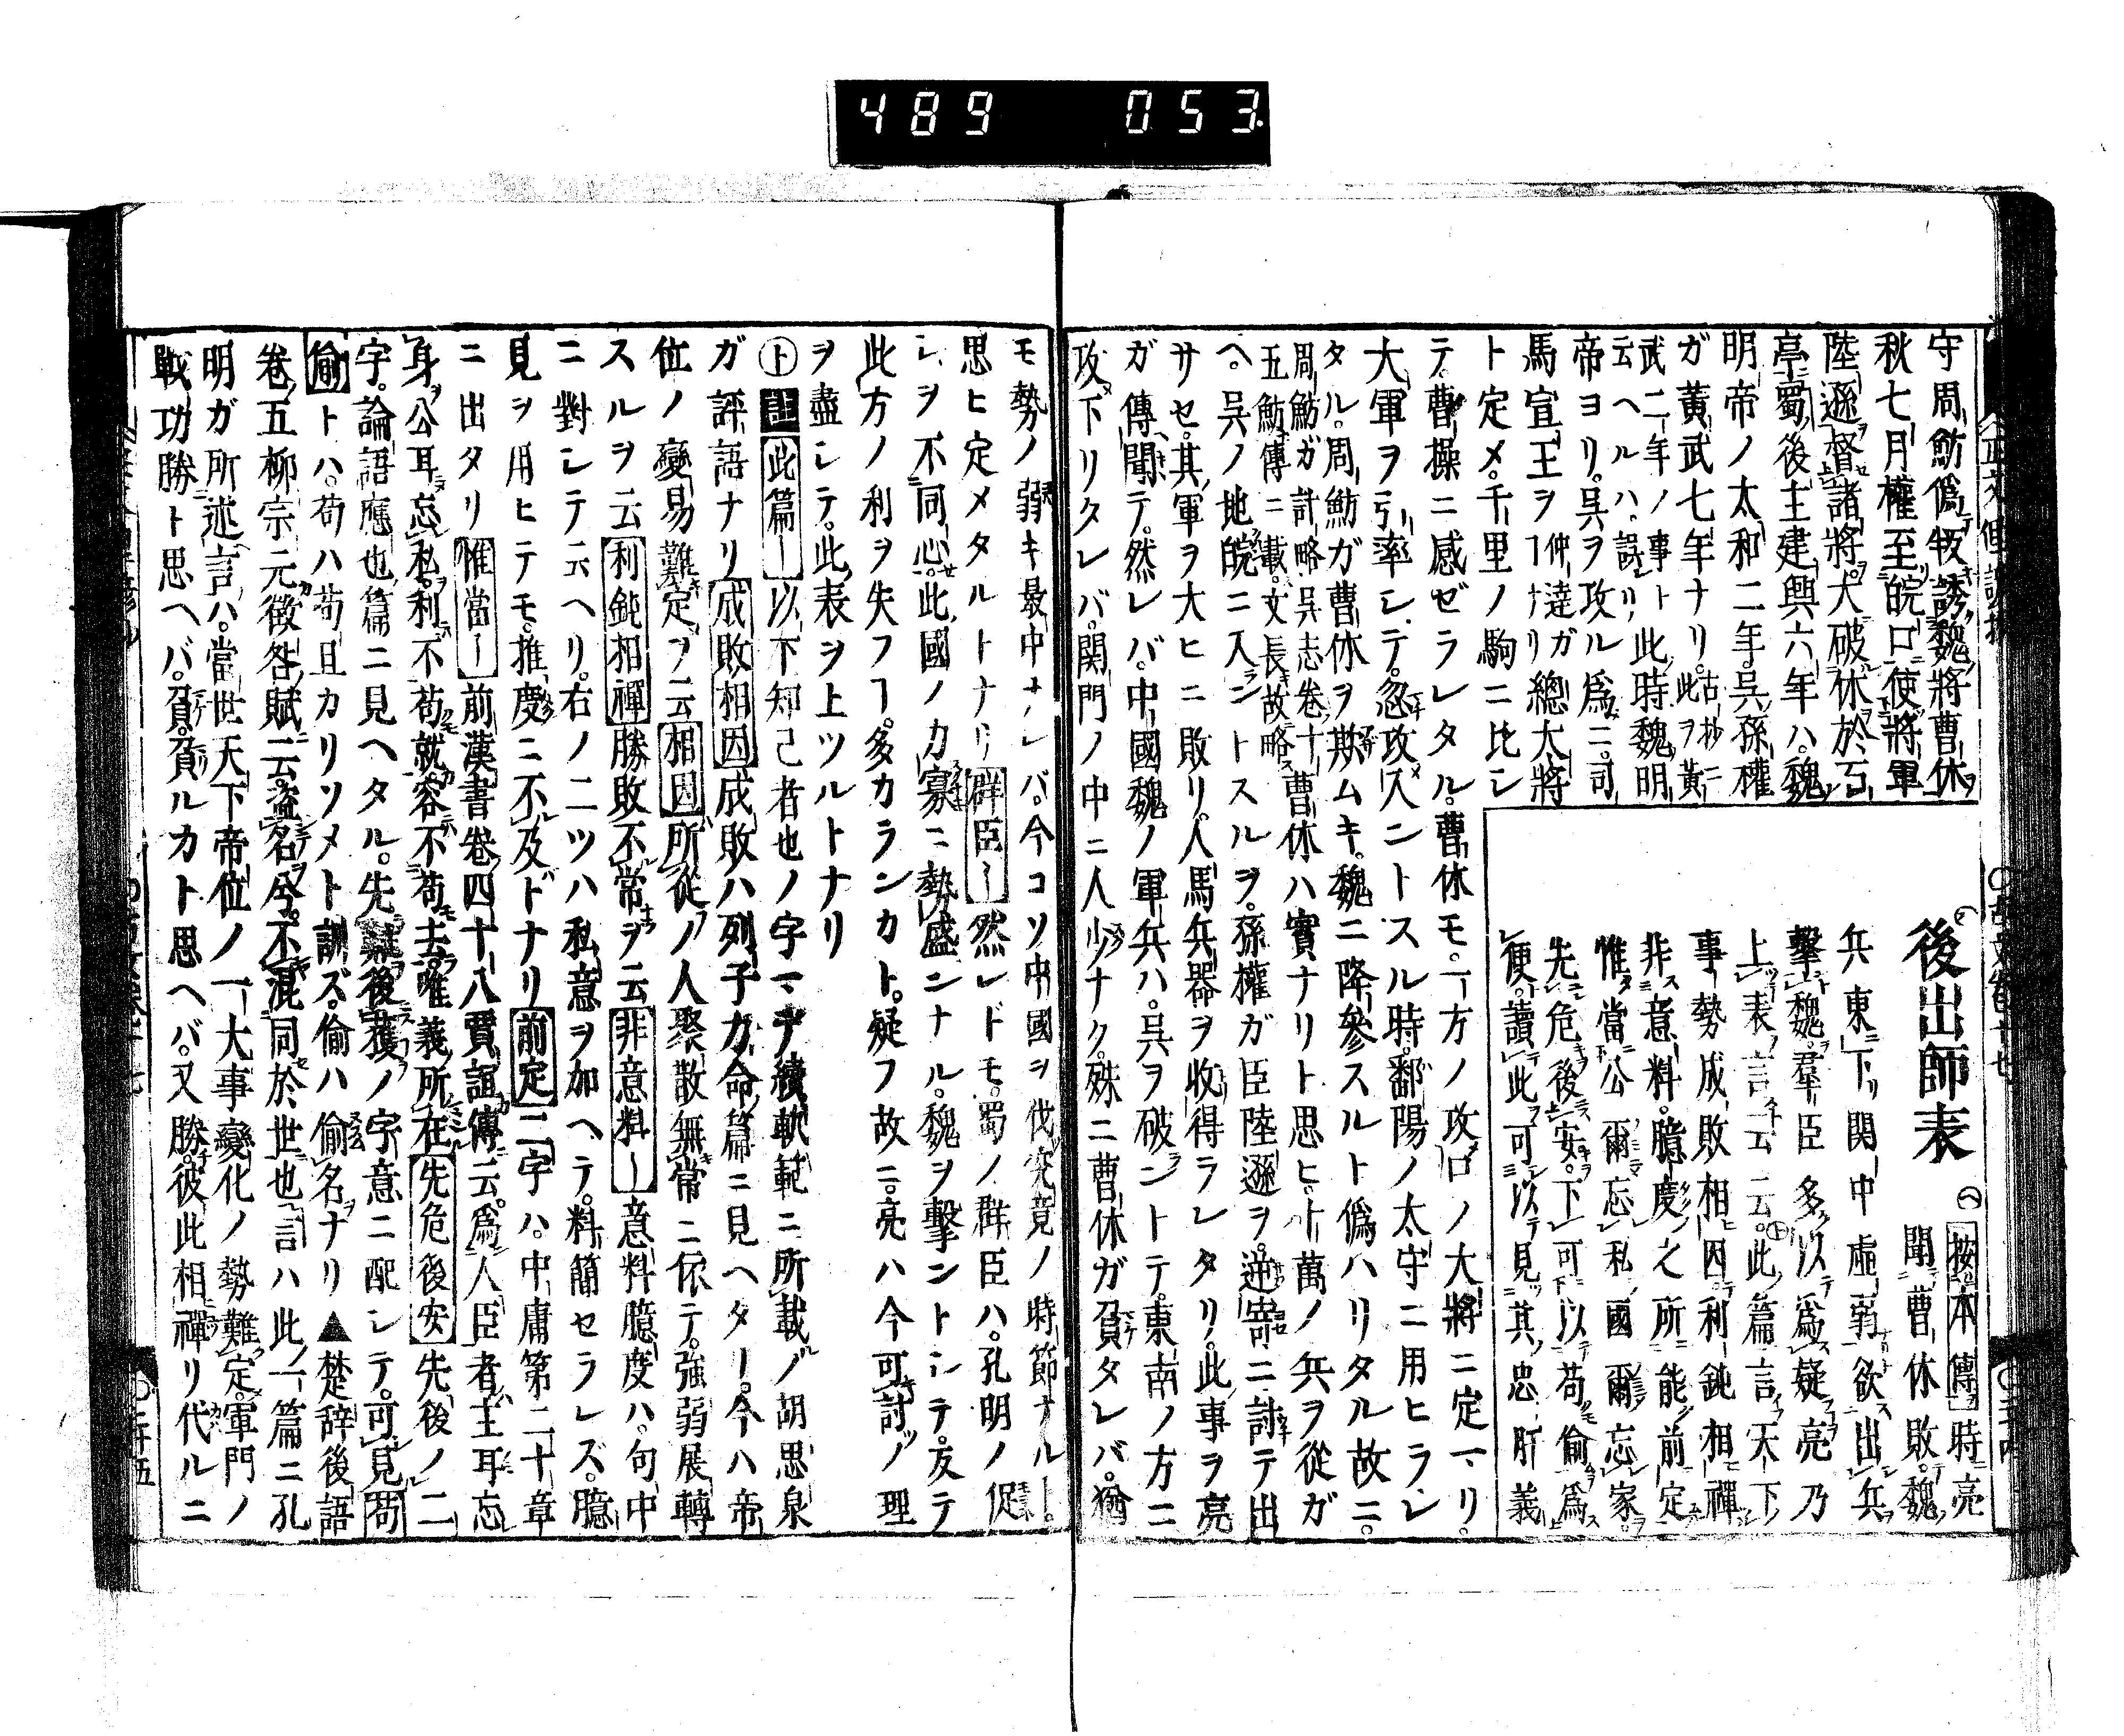 489 053
守周魴僞叛誘魏將曹休
秋七月權至皖口使將軍
陸遜督諸將大破休於石
亭蜀後主建興六年ハ魏
明帝ノ太和二年呉孫權
ガ黃武七年ナリ此ヲ古抄ニ黃
武二年ノ事ト云ヘルハ誤リ此時魏明
帝ヨリ呉ヲ攻ル爲ニ司
馬宣王ヲ仲達ガナリ總太將
ト定メ千里ノ駒ニ比シ
テ曹操ニ感ゼラレタル曹休モ一方ノ攻口ノ大將ニ定マリ
大軍ヲ引率シテ忽攻入ントスル時鄱陽ノ太守ニ用ヒラレ
タル周魴ガ曹休ヲ欺ムキ魏ニ降參スルト僞ハリタル故ニ
周魴ガ計略呉志卷十五魴傳ニ載文長故略曹休ハ實ナリト思ヒ十萬ノ兵ヲ從ガ
ヘ呉ノ地皖ニ入ントスルヲ孫權ガ臣陸遜ヲ逆寄ニ討テ出
サセ其軍ヲ大ヒニ敗リ人馬兵器ヲ收得ラレタリ此事ヲ亮
ガ傳聞テ然レバ中國魏ノ軍兵ハ呉ヲ破ントテ東南ノ方ニ
攻下リタレバ關門ノ中ニ人少ナク殊ニ曹休ガ負タレバ猶
後出師表
按本傳時亮
聞曹休敗魏
兵東下關中虛弱欲出兵
擊魏羣臣多以爲疑亮乃
上表言云云此篇言天下
事勢成敗相因利鈍相禪
非意料臆度之所能前定
惟當公爾忘私國爾忘家
先危後安下可以苟偷爲
便讀此可以見其忠肝義
モ勢ノ弱キ最中ナレバ今コソ中國ヲ伐究竟ノ時節ナル
思ヒ定メタルトナリ群臣〡然レドモ蜀ノ群臣ハ孔明ノ促
シヲ不同心此國ノ力寡ニ勢盛ンナル魏ヲ擊ントシテ友テ
此方ノ利ヲ失フヿ多カランカト疑フ故ニ亮ハ今可討ノ理
ヲ盡シテ此表ヲ上ツルトナリ
ト註此篇〡以下知己者也ノ字マデ續軌範ニ所載ノ胡思泉
ガ評語ナリ成敗相因成敗ハ列子力命篇ニ見ヘタリ今ハ帝
位ノ變易難定ヲ云相因所從ノ人聚散無常ニ依テ強弱展轉
スルヲ云利鈍相禪勝敗不常ヲ云非意料〡意料臆度ハ句中
ニ對シテ云ヘリ右ノ二ツハ私意ヲ加ヘテ料簡セラレズ臆
見ヲ用ヒテモ推慶ニ不及ドナリ前定二字ハ中庸第二十章
ニ出タリ惟當〡前漢書卷四十八賈誼傳云爲人臣者主耳忘
身公耳忘私利不苟就害不苟去唯義所在先危後安先後ノ二
字論語應也篇ニ見ヘタル先難後獲ノ字意ニ配シテ可見苟
偷トハ苟ハ苟且カリソメト訓ズ偷ハ偷名ナリ▲楚辞後語
卷五柳宗元徵咎賦云盜名兮不混同於世也言ハ此一篇ニ孔
明ガ所述言ハ當世天下帝位ノ一大事變化ノ勢難定軍門ノ
戰功勝ト思ヘバ負負ルカト思ヘバ又勝彼此相禪リ代ルニ